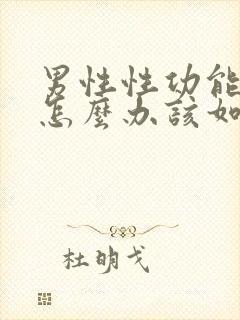 男性性功能
怎麼办該如
杜明戈